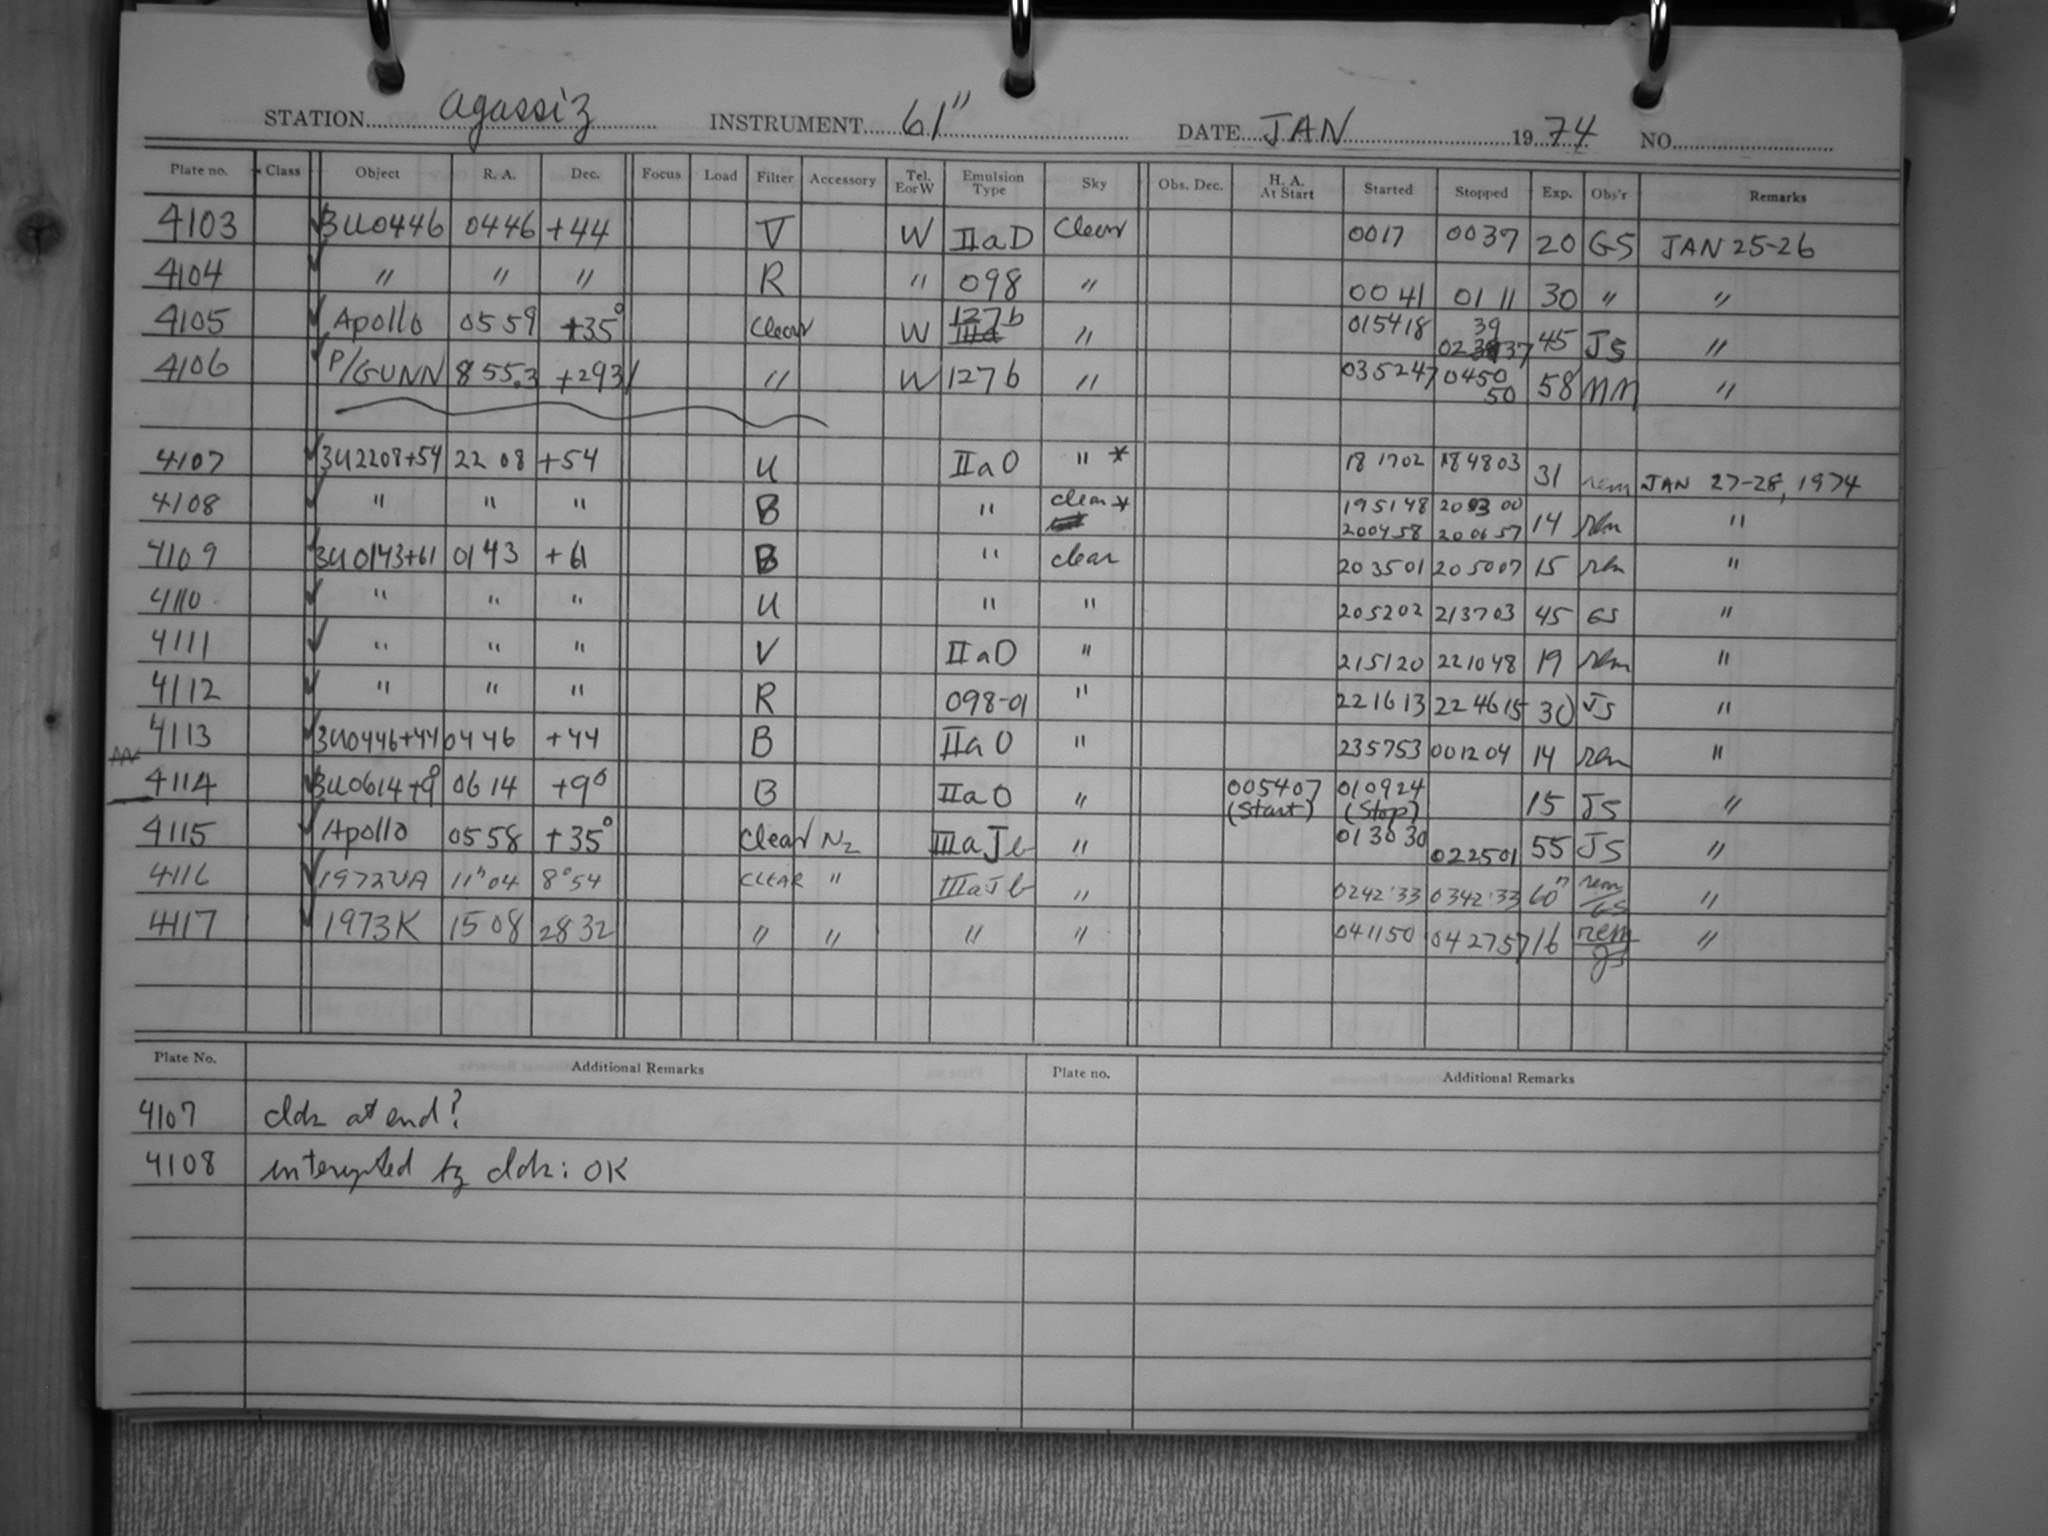 STATION Agassiz INSTRUMENT 61" DATE JAN 1974 NO.
Plate no. Class Object R. A. Dec. Focus Load Filter Accessory Tel. E or W Emulsion Type Sky Obs. Dec. H. A. At Start Started Stopped Exp. Obs'r Remarks
4103 ✓ 3U0446 0446 +44 V W IIaD Clear 0017 0037 20 GS JAN 25-26
4104 ✓ " " " R " 098 " 0041 0111 30 " "
4105 ✓ Apollo 0559 +35° Clear W 127b " 015418 023937 45 JS "
4106 ✓ P/GUNN 855.3 +2931 " W 127b " 035247 045050 58 MM "
4107 ✓ 3U2208+54 2208 +54 U IIaO " * 181702 184803 31 rem JAN 27-28, 1974
4108 ✓ " " " B " clear * 195148 200300 14 rem "
200458 200657
4109 ✓ 3U0143+61 0143 +61 B " clear 203501 205007 15 rem "
4110 ✓ " " " U " " 205202 213703 45 GS "
4111 ✓ " " " V IIaD " 215120 221048 19 rem "
4112 ✓ " " " R 098-01 " 221613 224615 30 JS "
4113 ✓ 3U0446+44 0446 +44 B IIaO " 235753 001204 14 rem "
4114 ✓ 3U0614+9 0614 +9° B IIaO " 005407 (Start) 010924 (Stop) 15 JS "
4115 ✓ Apollo 0558 +35° Clear N2 IIIaJb " 013030 022501 55 JS "
4116 ✓ 1972UA 11h04 8°54 CLEAR " IIIaJb " 0242'33 0342'33 60m rem/GS "
4117 ✓ 1973K 1508 2832 " " " " 041150 042757 16 rem/JS "
Plate No. Additional Remarks Plate no. Additional Remarks
4107 clds at end?
4108 interupted by clds: OK